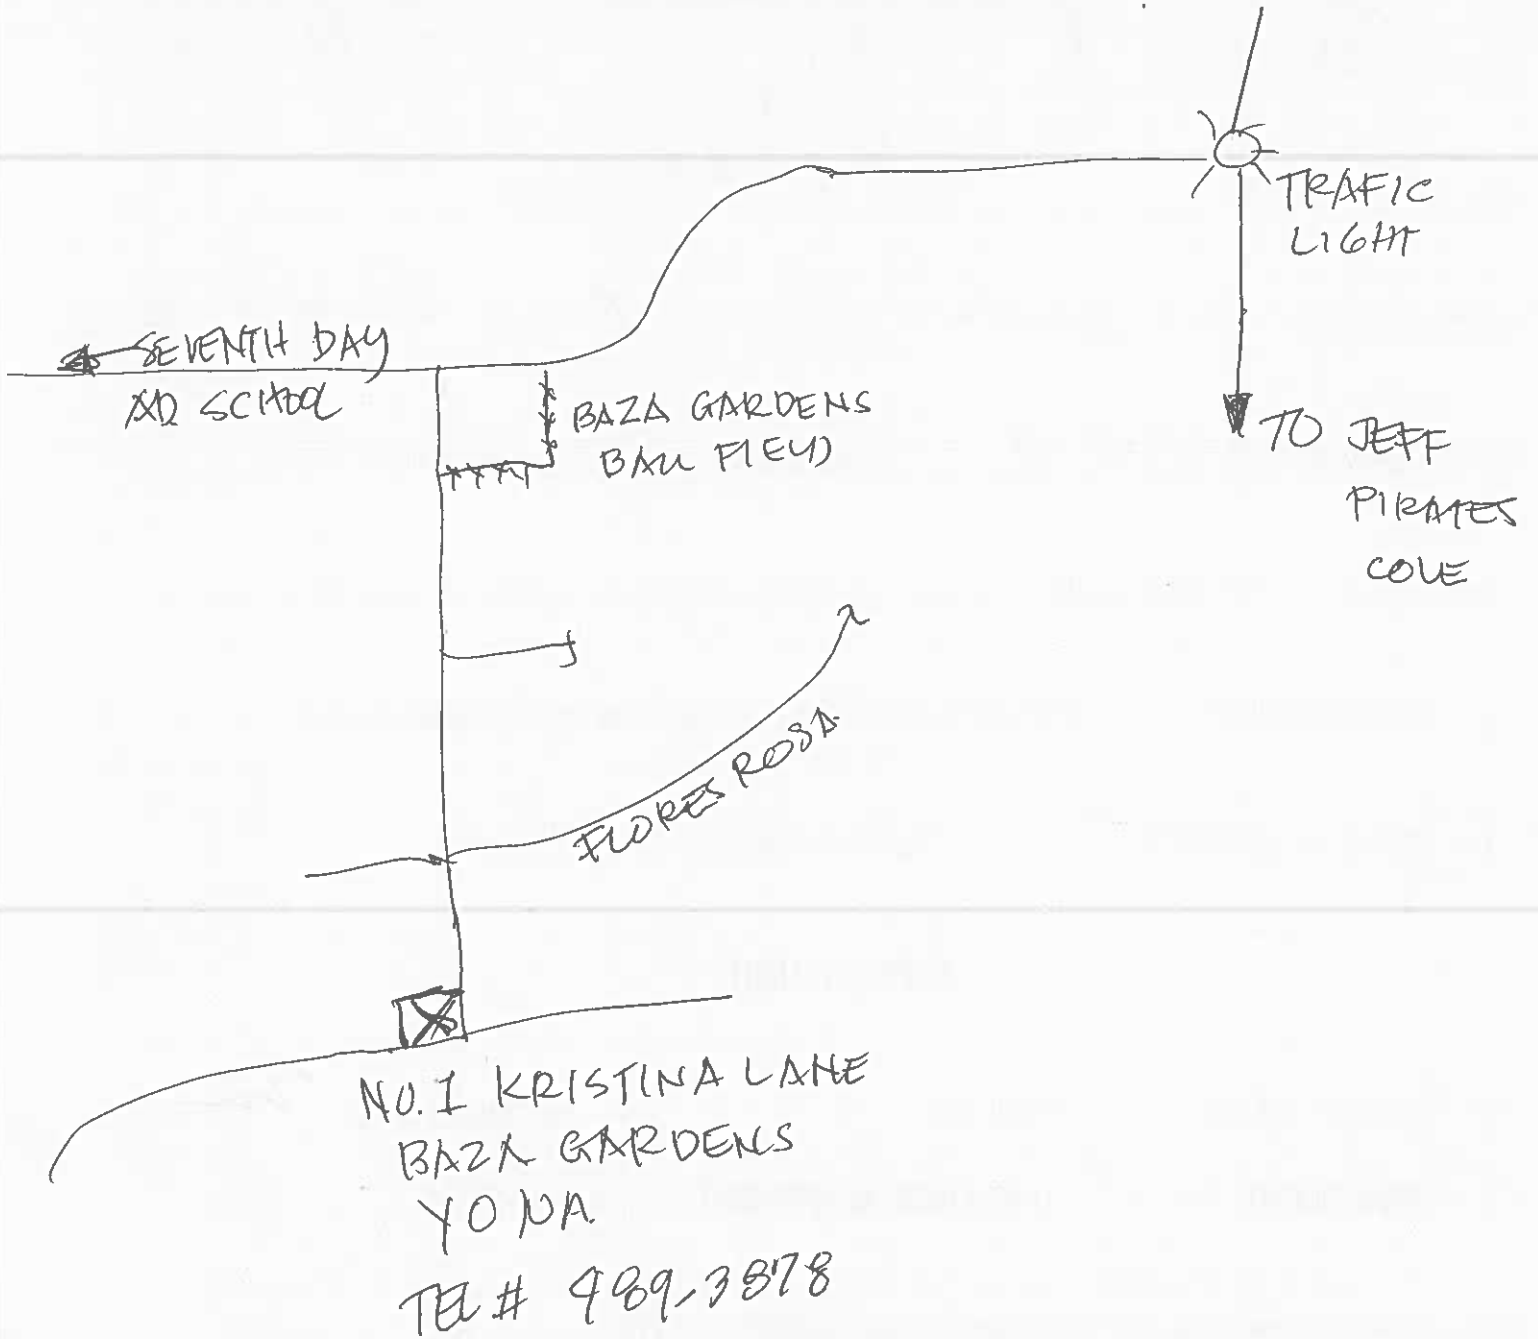 TRAFIC
LIGHT
SEVENTH DAY
AD SCHOOL
BAZA GARDENS
BALL FIELD
TO JEFF
PIRATES
COVE
FLORES ROSA
NO. 1 KRISTINA LANE
BAZA GARDENS
YONA
TEL # 489-3878